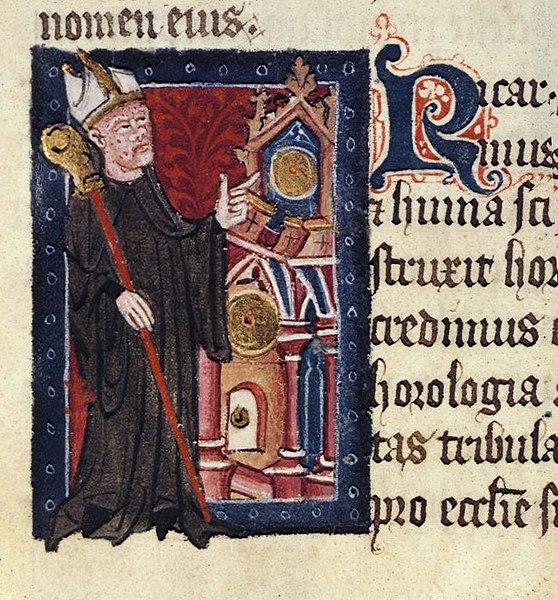 nomen eius.
Ricar.
mus
& huma sci
struxit hor
credimus
horologia
tas tribula
pro eccl̃ie